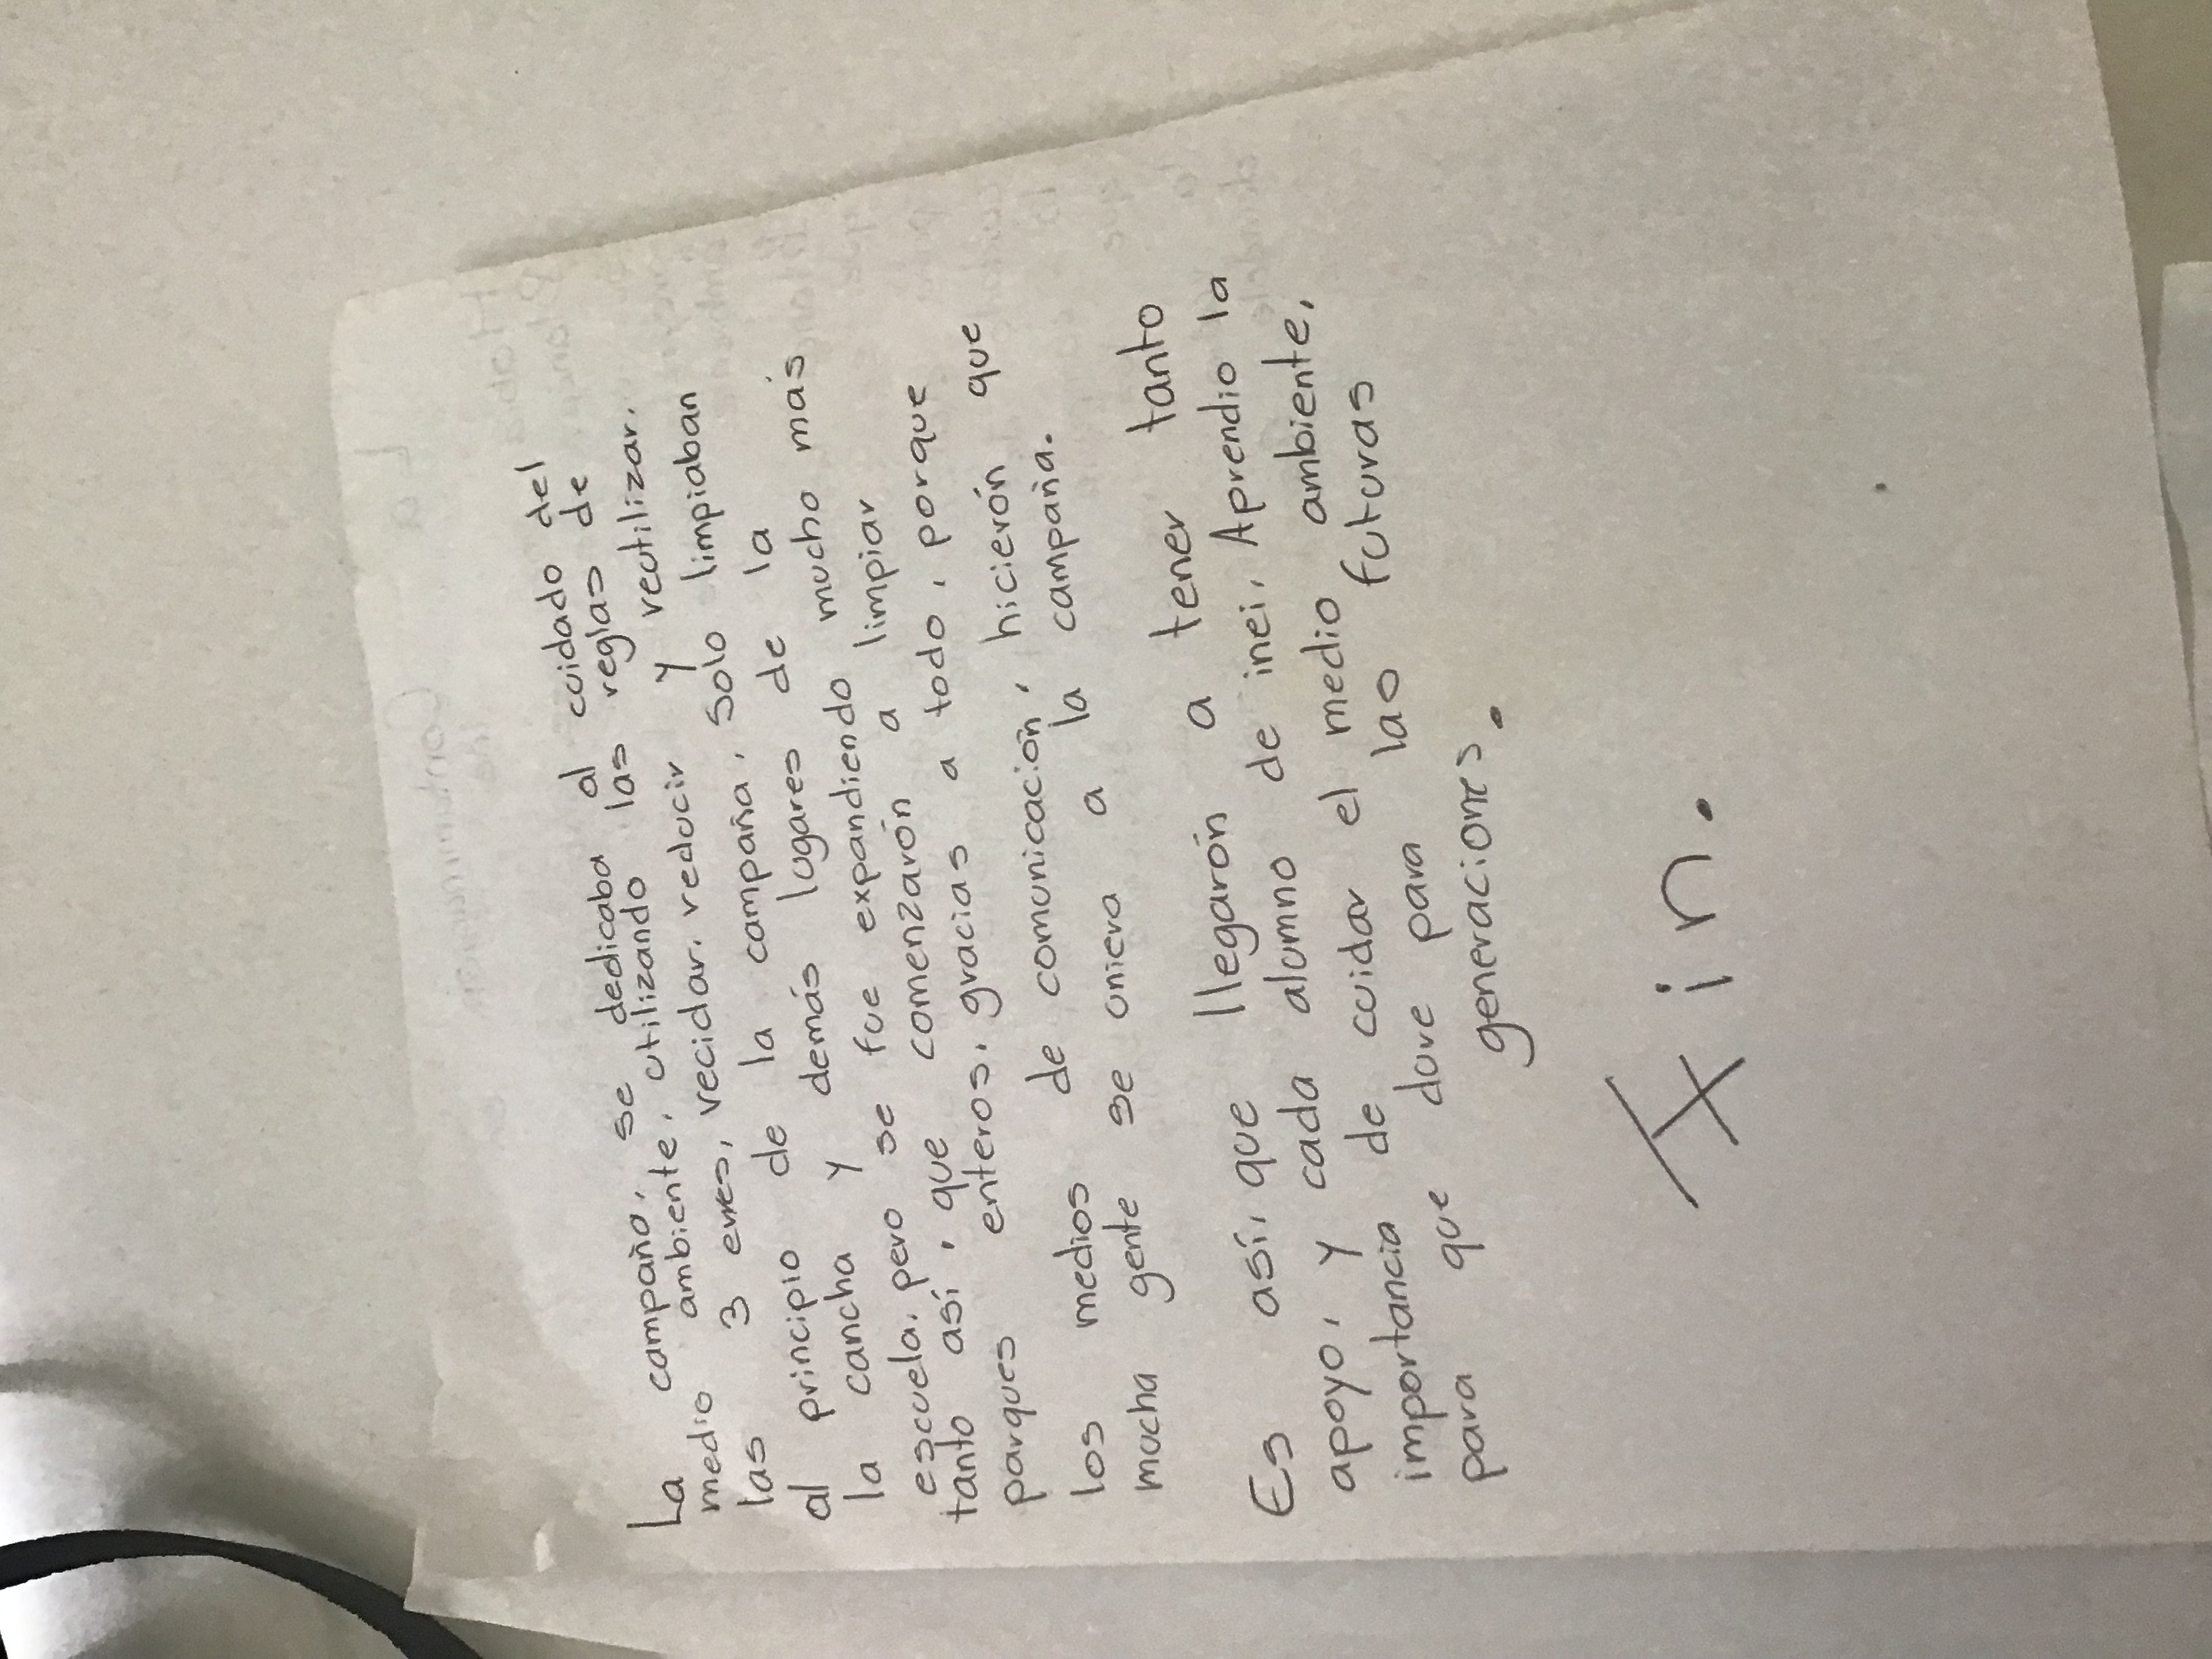 La campaño, se dedicaba al cuidado del
medio ambiente, utilizando las reglas de
las 3 erres, recidar, reducir y reutilizar.
al principio de la campaña, solo limpiaban
la cancha y demás lugares de la
escuela, pero se fue expandiendo mucho más
tanto así, que comenzarón a limpiar
parques enteros, gracias a todo, porque
los medios de comunicación, hicierón que
mucha gente se uniera a la campaña.
Es así, que llegarón a tener tanto
apoyo, y cada alumno de inei, Aprendio la
importancia de cuidar el medio ambiente,
para que dure para las futuras
generaciones.
Fin.